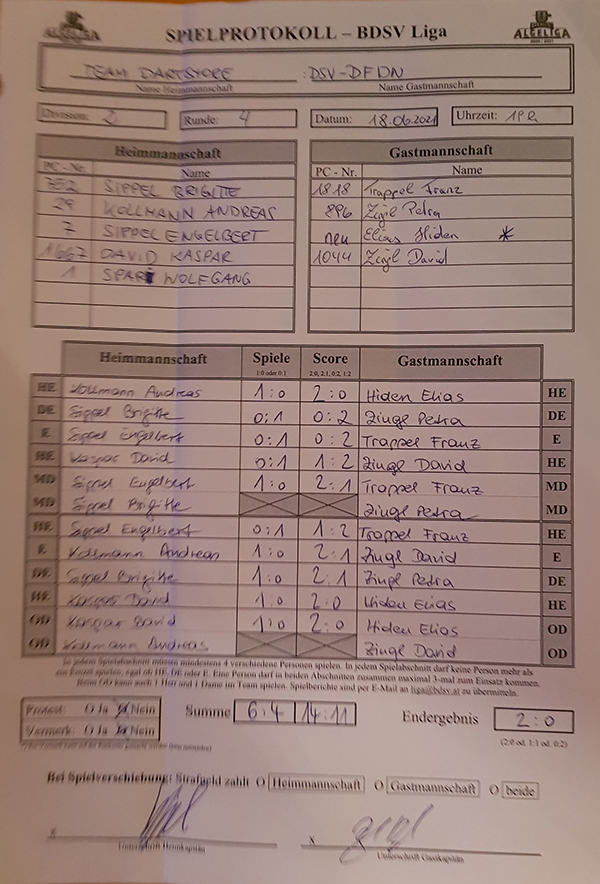 ALGELIGA SPIELPROTOKOLL – BDSV Liga ALGELIGA
TEAM DARTSTORE : DSV-DFDN
Name Heimmannschaft Name Gastmannschaft
Division: 2 Runde: 4 Datum: 18.06.2021 Uhrzeit:
Heimmannschaft Gastmannschaft
PC - Nr. Name PC - Nr. Name
752 SIPPEL BRIGITTE 1818 Trappel Franz
29 KOLLMANN ANDREAS 896 Zigl Petra
7 SIPPEL ENGELBERT neu Elias Hiden *
1667 DAVID KASPAR 1044 Zigl David
1 SPARI WOLFGANG
Heimmannschaft Spiele Score Gastmannschaft
1:0 oder 0:1 2:0, 2:1, 0:2, 1:2
HE Kollmann Andreas 1:0 2:0 Hiden Elias HE
DE Sippel Brigitte 0:1 0:2 Zingl Petra DE
E Sippel Engelbert 0:1 0:2 Trappel Franz E
HE Kaspar David 0:1 1:2 Zingl David HE
MD Sippel Engelbert 1:0 2:1 Trappel Franz MD
MD Sippel Brigitte Zingl Petra MD
HE Sippel Engelbert 0:1 1:2 Trappel Franz HE
E Kollmann Andreas 1:0 2:1 Zingl David E
DE Sippel Brigitte 1:0 2:1 Zingl Petra DE
HE Kaspar David 1:0 2:0 Hiden Elias HE
OD Kaspar David 1:0 2:0 Hiden Elias OD
OD Kollmann Andreas Zingl David OD
In jedem Spielabschnitt müssen mindestens 4 verschiedene Personen spielen. In jedem Spielabschnitt darf keine Person mehr als
ein Einzel spielen, egal ob HE, DE oder E. Eine Person darf in beiden Abschnitten zusammen maximal 3-mal zum Einsatz kommen.
Beim OD kann auch 1 Herr und 1 Dame im Team spielen. Spielberichte sind per E-Mail an liga@bdsv.at zu übermitteln.
Protest: O Ja O Nein Summe 6:4 14:11 Endergebnis 2:0
Vermerk: O Ja O Nein (2:0 od. 1:1 od. 0:2)
Bei Spielverschiebung: Strafgeld zahlt O Heimmannschaft O Gastmannschaft O beide
x x
Unterschrift Heimkapitän Unterschrift Gastkapitän